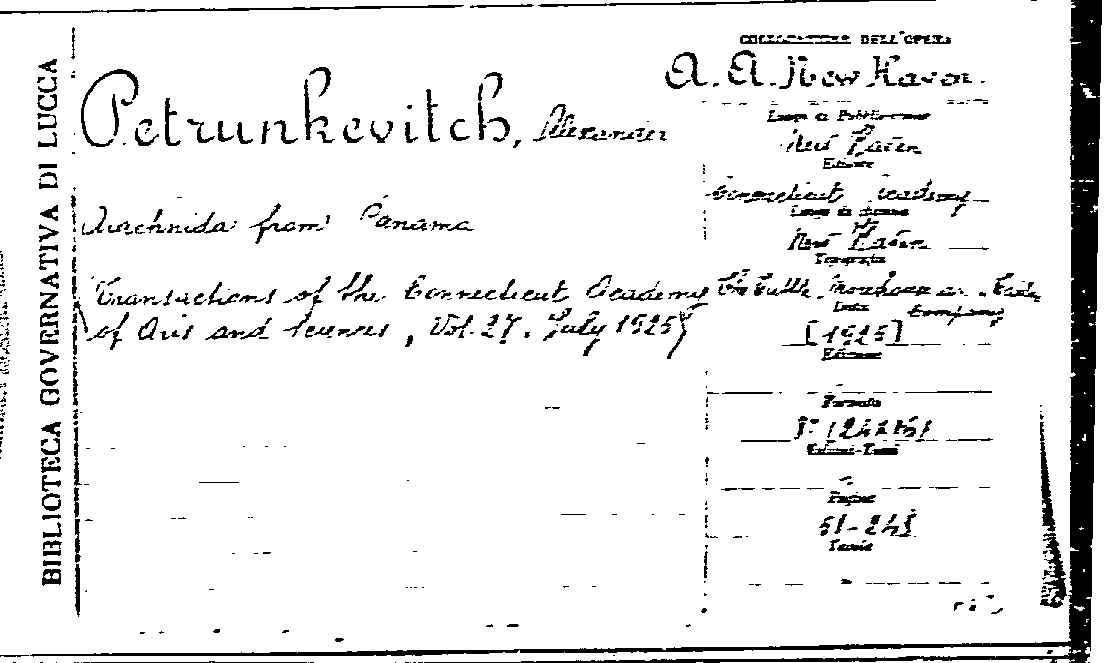 BIBLIOTECA GOVERNATIVA DI LUCCA
COLLOCAZIONE DELL'OPERA
A. A. New Haven.
Petrunkevitch, Alexander
Luogo di Pubblicazione
New Haven
Editore
Connecticut Academy
Arachnida from Panama
Luogo di stampa
New Haven
Tipografia
Transactions of the Connecticut Academy
of Arts and Sciences, Vol. 27. July 1925)
The Tuttle, Morehouse
Company
Data
[1925]
Edizione
Formato
8° (24x16)
Volumi-Tomi
Pagine
51-248
Tavole